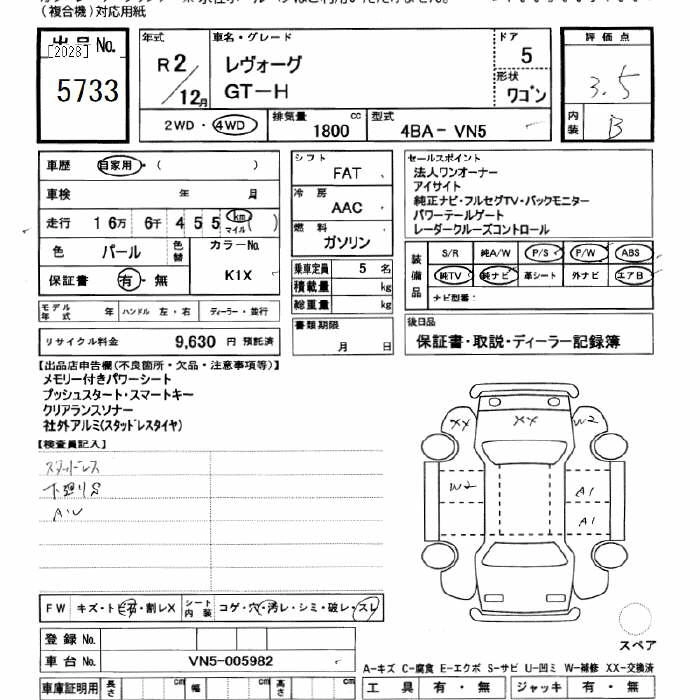 (複合機)対応用紙
出品 No.
[2028]
5733
年式
R2/12月
車名・グレード
レヴォーグ
GT-H
ドア
5
形状
ワゴン
2WD・4WD
排気量
1800 cc
型式
4BA- VN5
評価点
3.5
内装
B
車歴 自家用・( )
車検 年 月
走行 16万 6千 455 km マイル ( )
色 パール 色替
カラーNo.
K1X
保証書 有・無
モデル年式 年 ハンドル 左・右 ディーラー・並行
リサイクル料金 9,630 円 預託済
シフト
FAT
冷房
AAC
燃料
ガソリン
乗車定員 5 名
積載量 kg
総重量 kg
書類期限
月 日
セールスポイント
法人ワンオーナー
アイサイト
純正ナビ・フルセグTV・バックモニター
パワーテールゲート
レーダークルーズコントロール
装備品
S/R 純A/W P/S P/W ABS
純TV 純ナビ 革シート 外ナビ エアB
ナビ型番:
後日品
保証書・取説・ディーラー記録簿
【出品店申告欄(不良箇所・欠品・注意事項等)】
メモリー付きパワーシート
プッシュスタート・スマートキー
クリアランスソナー
社外アルミ(スタッドレスタイヤ)
【検査員記入】
スタッドレス
下廻りS
A・U
XX XX W2
W2 A1
A1
スペア
FW キズ・トビ石・割レX
シート内装 コゲ・穴・汚レ・シミ・破レ・スレ
登録 No.
車台 No. VN5-005982
A-キズ C-腐食 E-エクボ S-サビ U-凹ミ W-補修 XX-交換済
車庫証明用 長さ cm 幅 cm 高さ cm
工具 有・無 ジャッキ 有・無